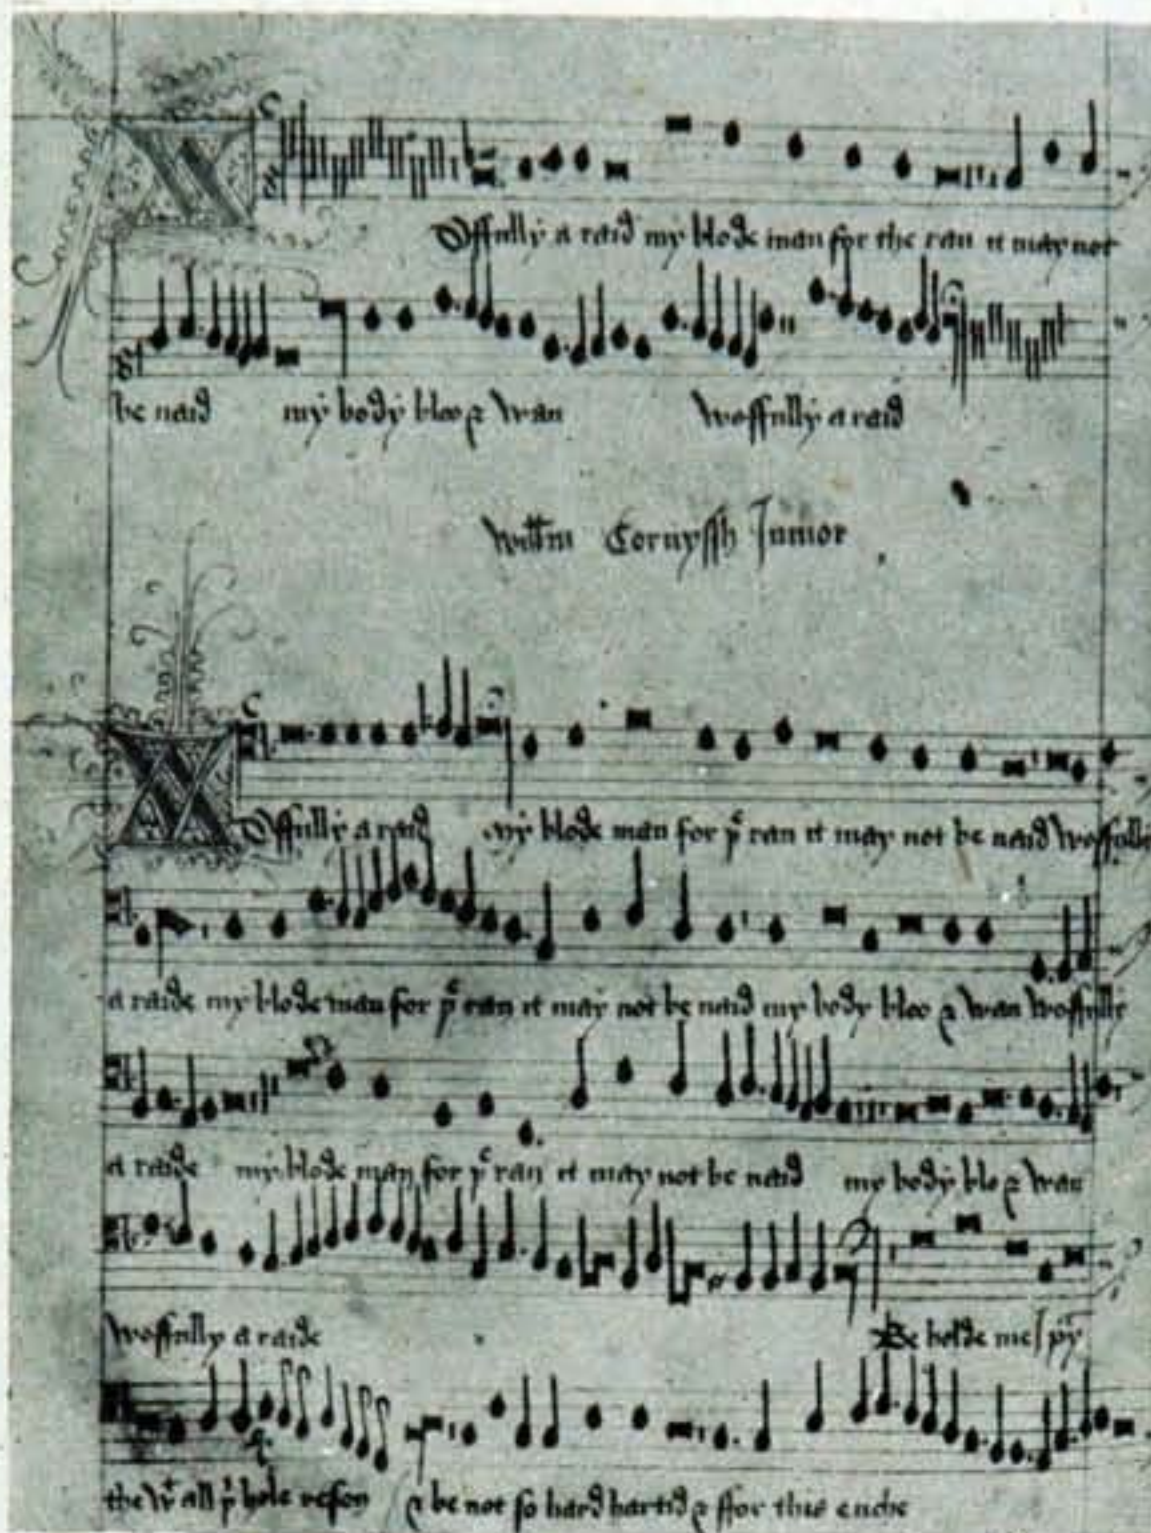 Woffully a raid my blode man for the ran it may not
be naid my body bloo & wan woffully a raid
Willm Cornyssh Junior
Woffully a raid my blode man for yͤ ran it may not be naid woffully
a raide my blode man for yͤ ran it may not be naid my body bloo & wan woffully
a raide my blode man for yͤ ran it may not be naid my body blo & wan
woffully a raide Be holde me I pͬy
the wͭ all yͥ hole reson & be not so hard hartid & ffor this enche